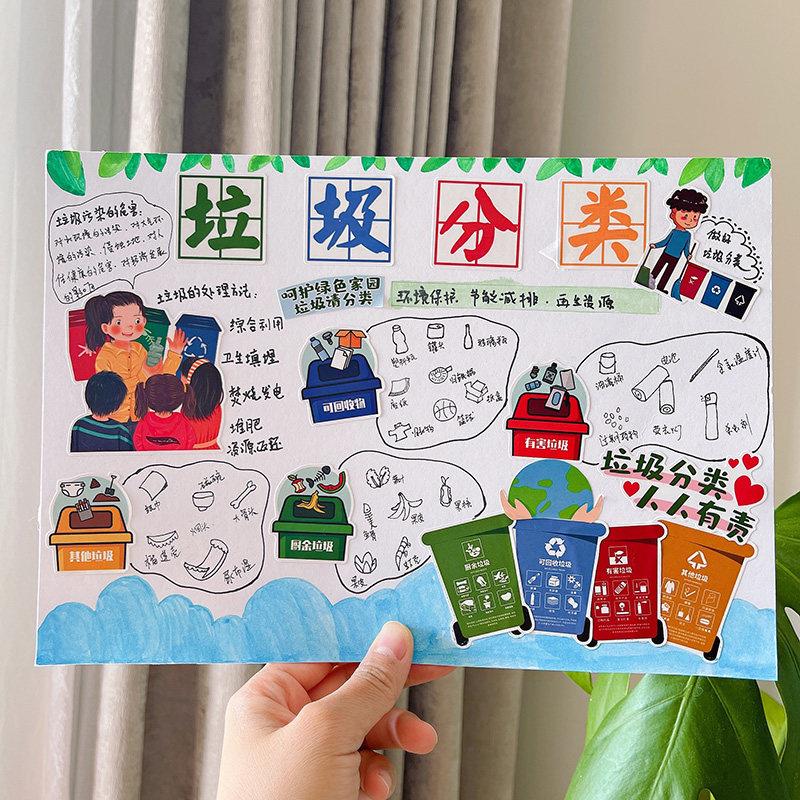 垃圾分类
垃圾污染的危害:
对水环境的污染 对大气环
境的污染、侵蚀土地、对人
体健康的危害、对经济发展
做好
垃圾分类
垃圾的处理方法:
综合利用
卫生填埋
焚烧发电
堆肥
资源返还
呵护绿色家园
垃圾请分类
环境保护 节能减排 再生资源
可回收物
塑料瓶
罐头
玻璃瓶
报纸
易拉罐
纸盒
旧衣物
篮球
有害垃圾
油漆桶
电池
含汞温度计
过期药物
荧光灯
杀虫剂
其他垃圾
纸巾
破碗
烟头
大骨头
榴莲壳
尿布湿
厨余垃圾
果皮
果核
垃圾分类
人人有责
厨余垃圾
可回收垃圾
有害垃圾
其他垃圾